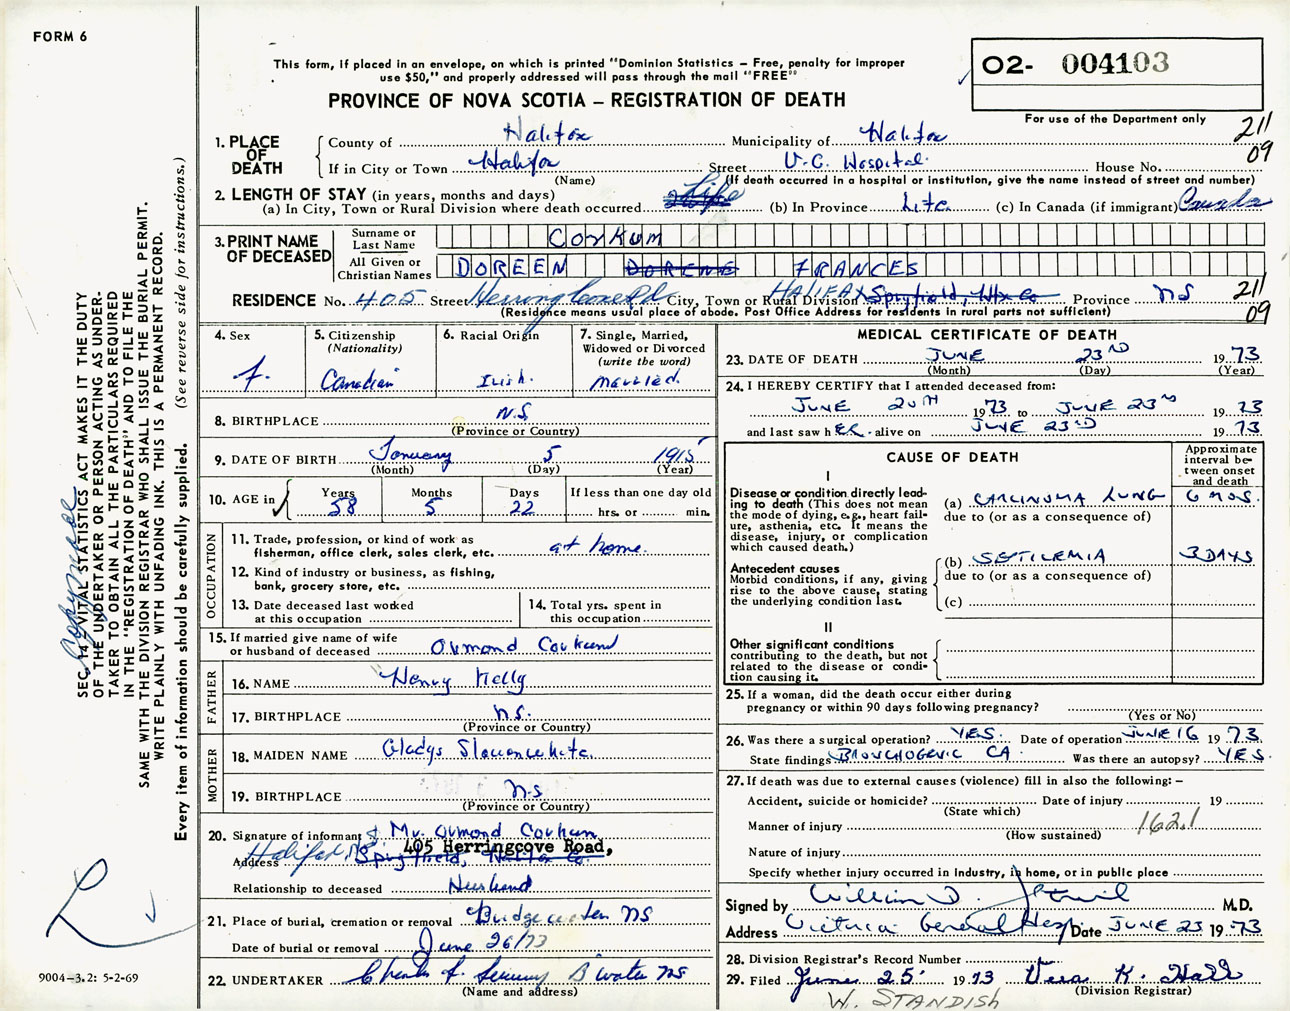 FORM 6
This form, if placed in an envelope, on which is printed "Dominion Statistics — Free, penalty for improper
use $50," and properly addressed will pass through the mail "FREE"
O2- 004103
For use of the Department only
PROVINCE OF NOVA SCOTIA – REGISTRATION OF DEATH
211
09
1. PLACE OF DEATH
County of Halifax Municipality of Halifax
If in City or Town Halifax Street V.G. Hospital House No.
(Name) (If death occurred in a hospital or institution, give the name instead of street and number)
2. LENGTH OF STAY (in years, months and days)
(a) In City, Town or Rural Division where death occurred Life (b) In Province Life (c) In Canada (if immigrant) Canada
3. PRINT NAME OF DECEASED
Surname or Last Name Corkum
All Given or Christian Names DOREEN DORENE FRANCES
RESIDENCE No. 405 Street Herring Cove Rd City, Town or Rural Division HALIFAX Spryfield, Hfx Co Province NS
(Residence means usual place of abode. Post Office Address for residents in rural parts not sufficient)
211
09
4. Sex
f.
5. Citizenship
(Nationality)
Canadian
6. Racial Origin
Irish.
7. Single, Married,
Widowed or Divorced
(write the word)
married.
8. BIRTHPLACE N.S.
(Province or Country)
9. DATE OF BIRTH January 5 1915
(Month) (Day) (Year)
10. AGE in
Years 58
Months 5
Days 22
If less than one day old
hrs. or min.
OCCUPATION
11. Trade, profession, or kind of work as
fisherman, office clerk, sales clerk, etc. at home.
12. Kind of industry or business, as fishing,
bank, grocery store, etc.
13. Date deceased last worked
at this occupation
14. Total yrs. spent in
this occupation
15. If married give name of wife
or husband of deceased Ormond Corkum
FATHER
16. NAME Henry Kelly
17. BIRTHPLACE N.S.
(Province or Country)
MOTHER
18. MAIDEN NAME Gladys
19. BIRTHPLACE N.S
(Province or Country)
20. Signature of informant Mr. Ormond Corkum
405 Herringcove Road,
Address Halifax NS Spryfield, Halifax Co.
Relationship to deceased Husband
21. Place of burial, cremation or removal Bridgewater NS
Date of burial or removal June 26/73
22. UNDERTAKER B'water NS
(Name and address)
MEDICAL CERTIFICATE OF DEATH
23. DATE OF DEATH JUNE 23RD 1973
(Month) (Day) (Year)
24. I HEREBY CERTIFY that I attended deceased from:
JUNE 20TH 1973 to JUNE 23RD 1973
and last saw hER alive on JUNE 23RD 1973
CAUSE OF DEATH
Approximate
interval be-
tween onset
and death
I
Disease or condition directly lead-
ing to death (This does not mean
the mode of dying, e.g., heart fail-
ure, asthenia, etc. It means the
disease, injury, or complication
which caused death.)
(a) CARCINOMA LUNG 6 MOS.
due to (or as a consequence of)
(b) SETILEMIA 3 DAYS
due to (or as a consequence of)
(c)
Antecedent causes
Morbid conditions, if any, giving
rise to the above cause, stating
the underlying condition last.
II
Other significant conditions
contributing to the death, but not
related to the disease or condi-
tion causing it.
25. If a woman, did the death occur either during
pregnancy or within 90 days following pregnancy?
(Yes or No)
26. Was there a surgical operation? YES. Date of operation JUNE 16 1973.
State findings BRONCHOGENIC CA Was there an autopsy? YES.
27. If death was due to external causes (violence) fill in also the following: –
Accident, suicide or homicide? Date of injury 19
(State which)
Manner of injury 162.1
(How sustained)
Nature of injury
Specify whether injury occurred in industry, in home, or in public place
Signed by William D. M.D.
Address Victoria General Hosp Date JUNE 23 1973
28. Division Registrar's Record Number
29. Filed June 25 1973 Vera K. Hall
(Division Registrar)
W. STANDISH
SEC. 14 VITAL STATISTICS ACT MAKES IT THE DUTY
OF THE UNDERTAKER OR PERSON ACTING AS UNDER-
TAKER TO OBTAIN ALL THE PARTICULARS REQUIRED
IN THE "REGISTRATION OF DEATH" AND TO FILE THE
SAME WITH THE DIVISION REGISTRAR WHO SHALL ISSUE THE BURIAL PERMIT.
WRITE PLAINLY WITH UNFADING INK. THIS IS A PERMANENT RECORD.
Every item of information should be carefully supplied. (See reverse side for instructions.)
9004-3.2: 5-2-69